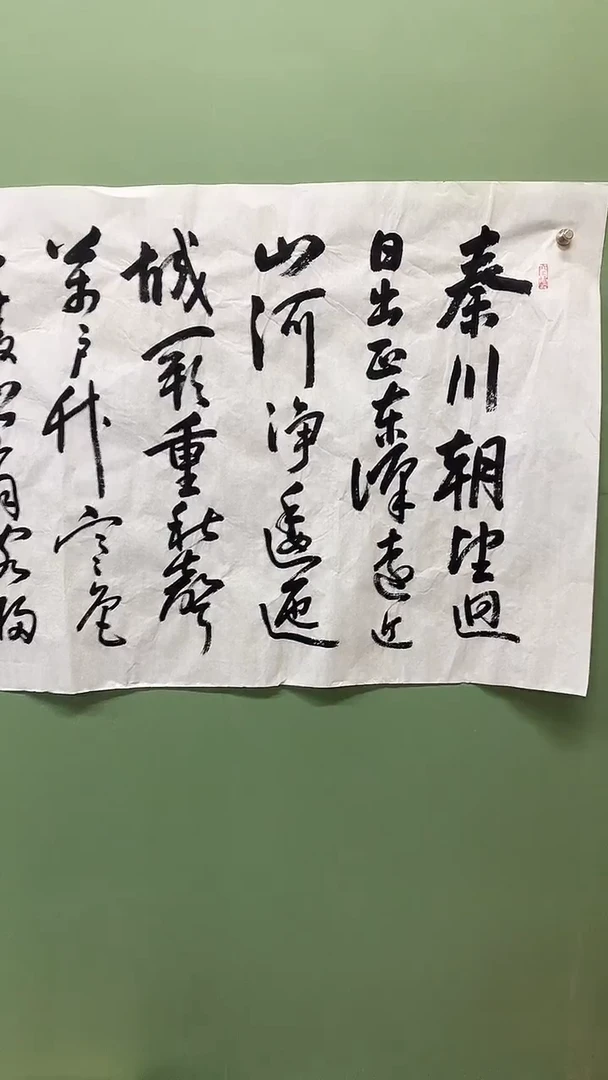 秦川朝望迥
日出正东峰遠近
山河净逶迤
城闕重秋聲
萬户竹寒色